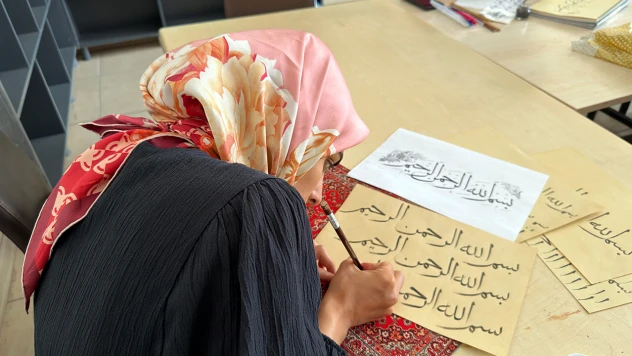 بسم الله الرحمن الرحيم
بسم الله الرحمن الرحيم
بسم الله الرحمن الرحيم
بسم الله الرحمن
بسم الله